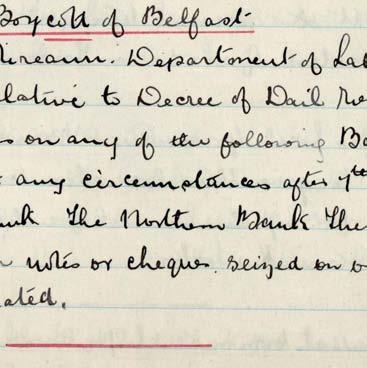 Boycott of Belfast
Eireann. Department of Lab
elative to Decree of Dail
s on any of the following Ba
any circumstances after 7th
ank The Northern Bank The
notes or cheques seized on
ated.